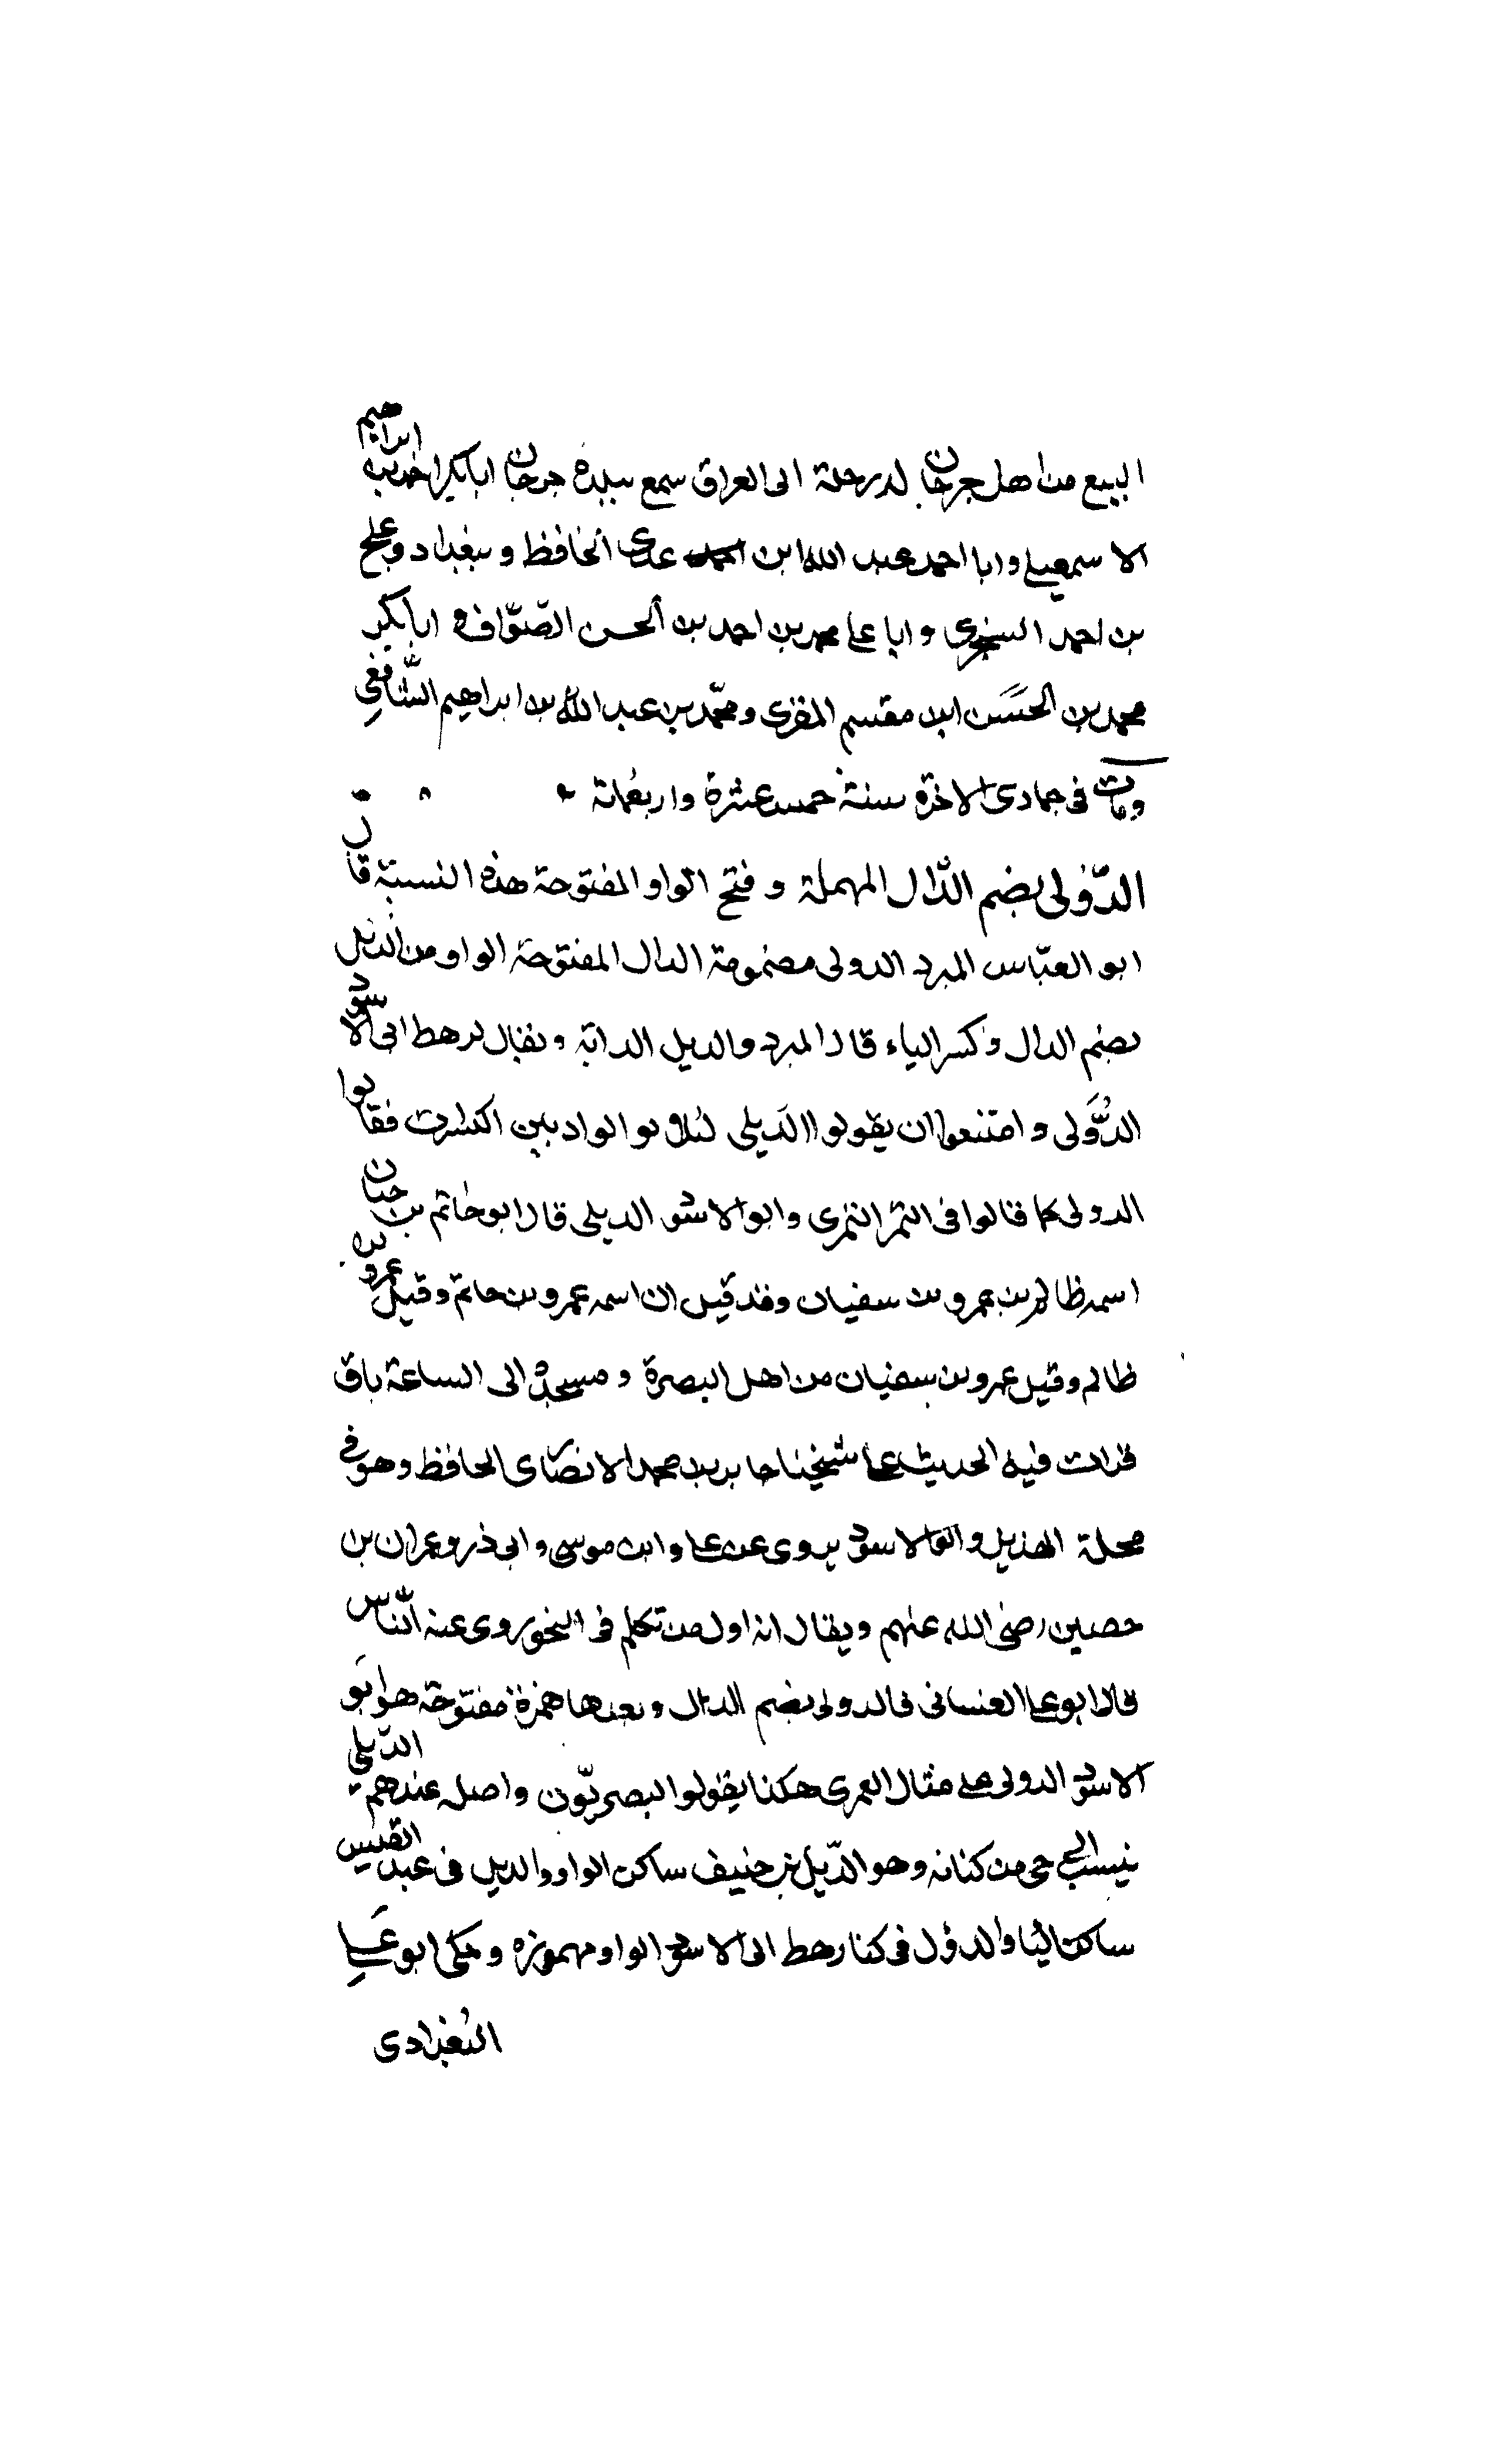 البيع من اهل جرجان له رحلة الى العراق سمع ببلده جرجان ابا بكر احمد بن ابراهيم
الاسمعيلى وابا احمد عبد الله ابن عدى الحافظ وببغداد دعلج
بن احمد السجزى وابا على محمد بن احمد بن الحسن الصوّاف و ابا بكر
محمد بن الحسَن ابن مقسم المقرى ومحمّد بن عبد الله بن ابراهيم الشّافعي
ومات فى جمادى الاخرة سنة خمس عشرة واربعمائة
الدّولى بضم الدّال المهملة و فتح الواو المفتوحة هذه النسبة قال
ابو العبّاس المبرد الدولى مضمومة الدال المفتوحة الواو من الدئل
بضم الدال وكسر الياء قال المبرد والديل الدابّة ويقال لرهط ابى الاسود
الدُّوَلى وامتنعوا ان يقولوا الديلى لئلا يوالوا بين الكسرات فقالوا
الدولى كما قالوا فى النمر النمرى وابو الاسود الديلى قال ابو حاتم بن حبان
اسمه ظالم بن عمرو بن سفيان وقد قيل ان اسمه عمرو بن حاتم وقيل عمرو بن
ظالم وقيل عمرو بن سفيان من اهل البصرة و مسجده الى الساعة باق
قرات فيه الحديث على شيخنا جابر بن محمد الانصارى الحافظ وهو فى
محلة الهذيل وابو الاسود يروى عن على وابى موسى وابى ذر وعمران بن
حصين رضى الله عنهم ويقال انه اول من تكلم فى النحو روى عنه النّاس
قال ابو على الغسانى فالدولى بضم الدال وبعدها همزة مفتوحة هو ابو
الاسود الدولى على مثال العمرى هكذا يقولو البصريّون واصله عندهم الدّيلي
ينسب الى حى من كنانه وهو الدّيل بن حنيف ساكن الواو والديل فى عبد القيس
ساكن اليا والدؤل فى كنانه رهط ابى الاسود الواو مهموزه وحكى ابو على
البغدادى